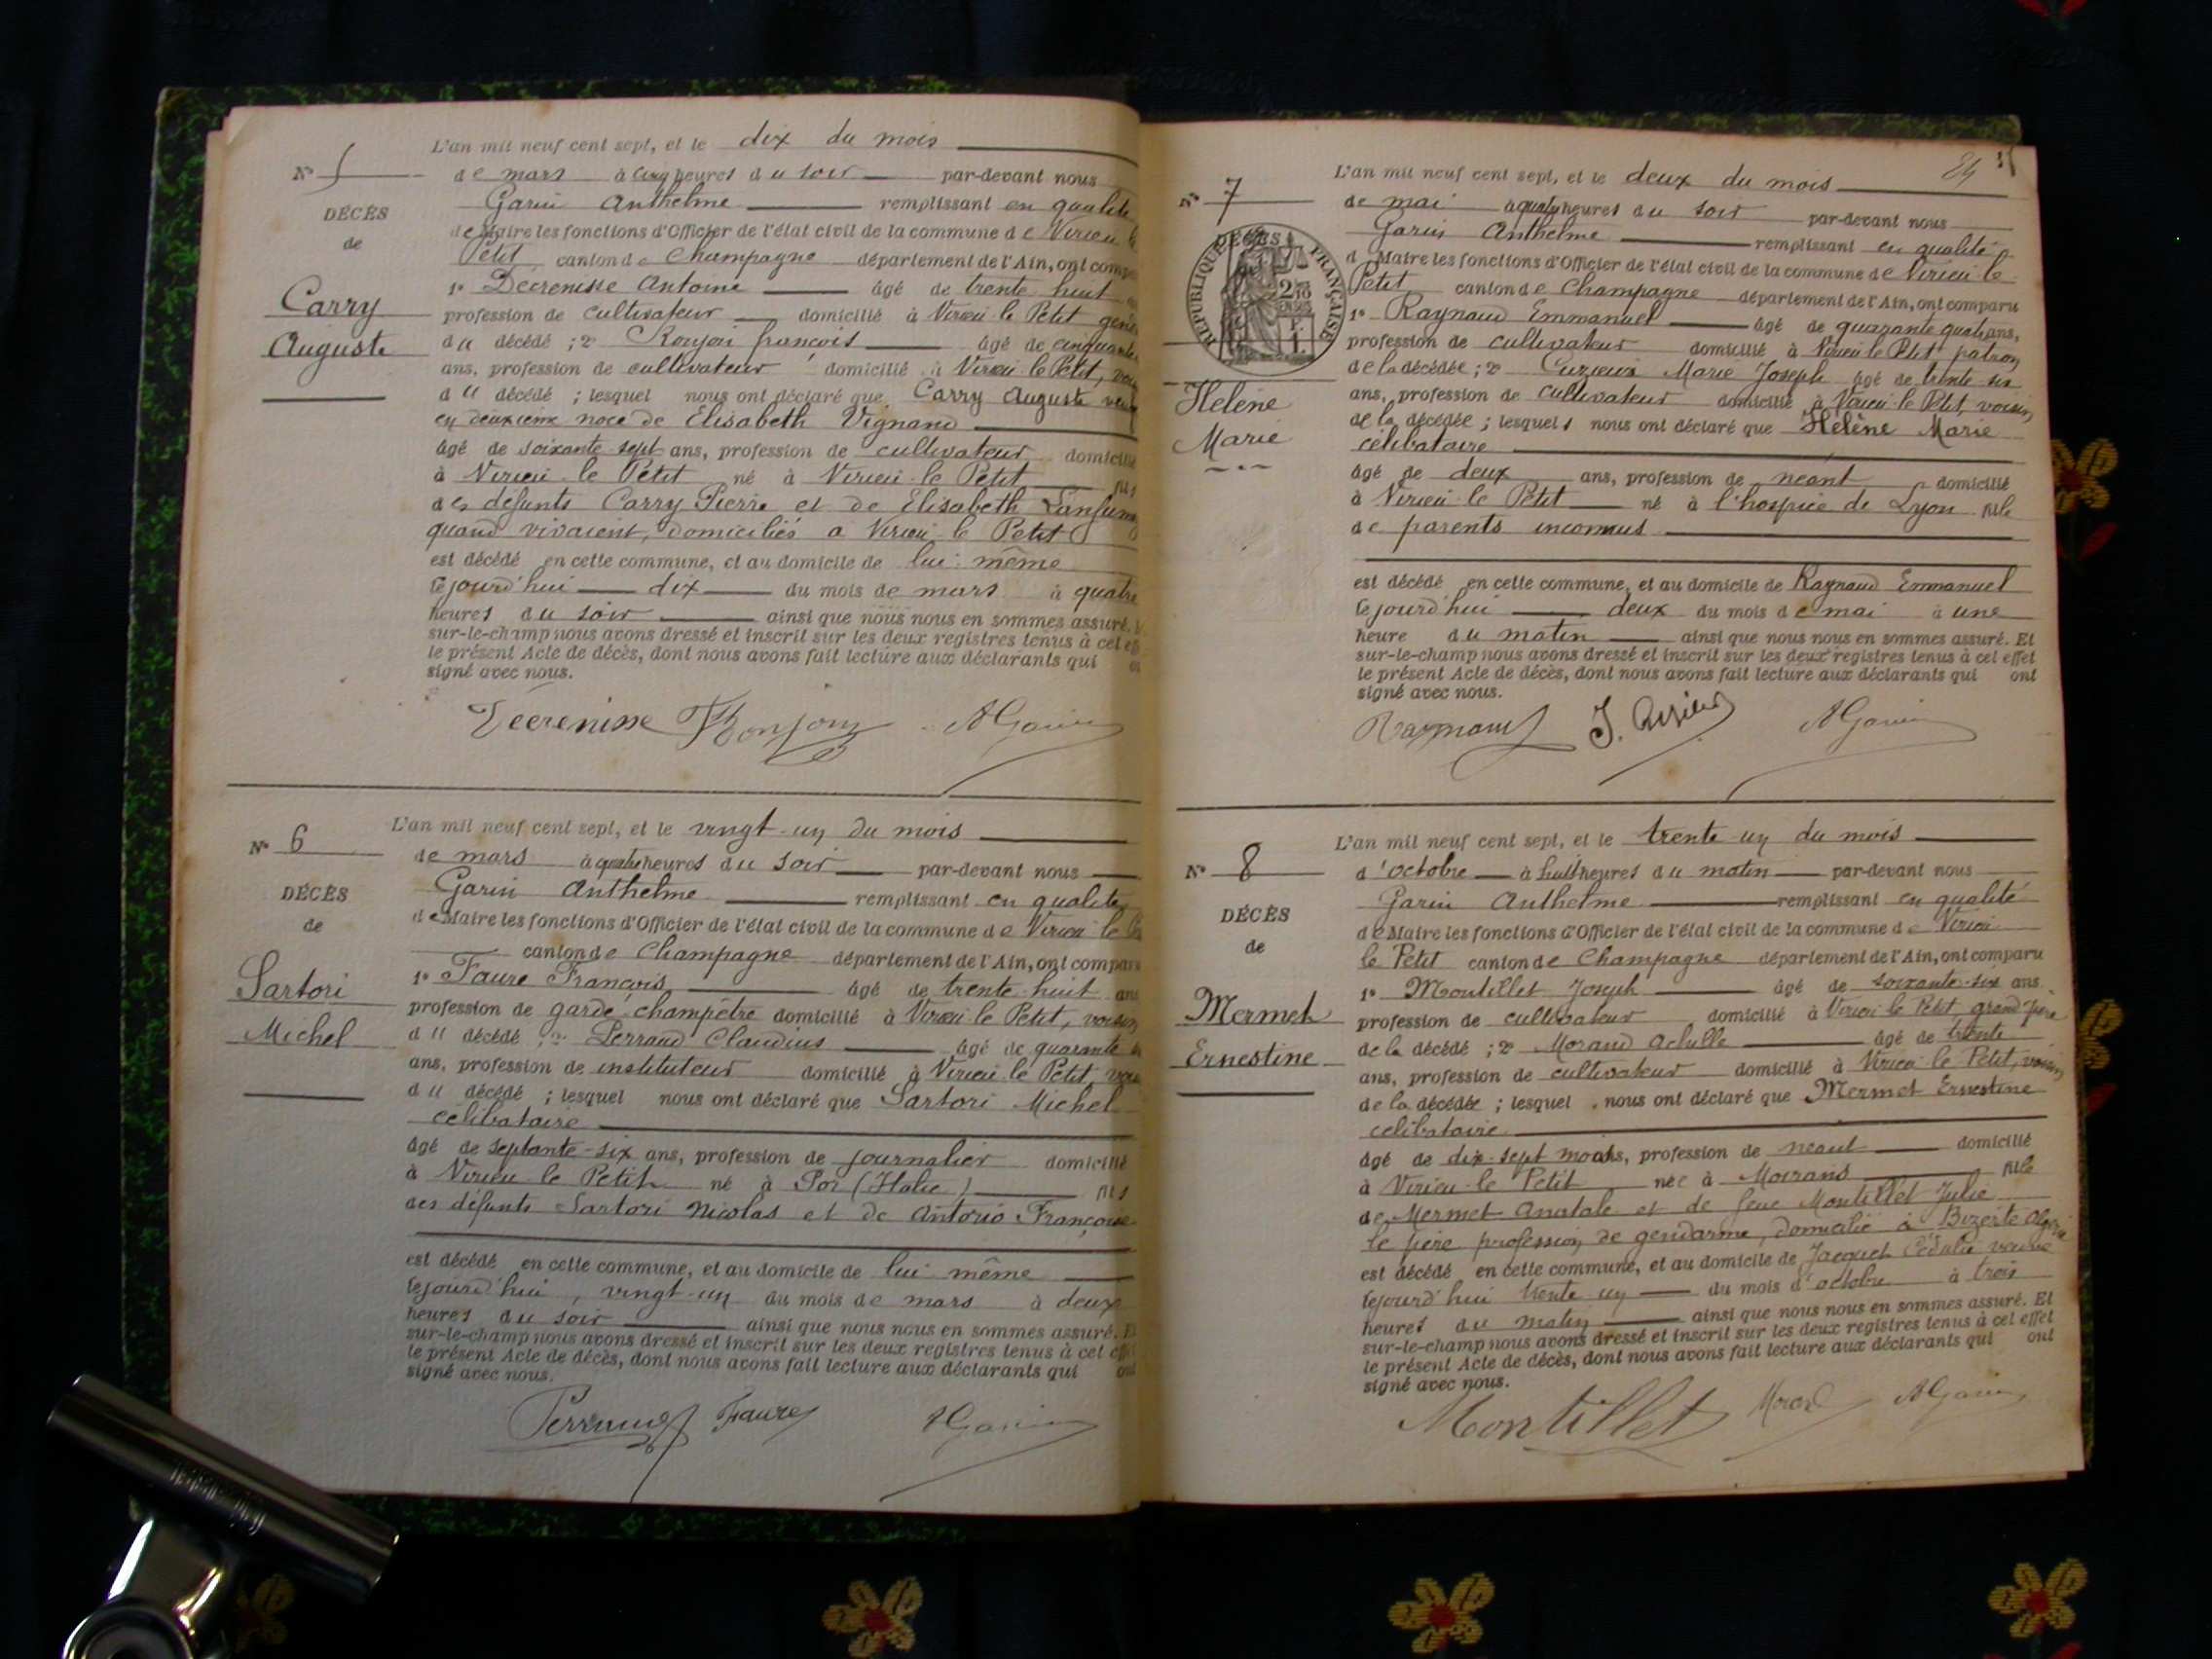 L'an mil neuf cent sept, et le dix du mois
N° 5
de mars à cinq heures du soir par-devant nous
Garin Anthelme remplissant en qualité
DÉCÈS
de Maire les fonctions d'Officier de l'état civil de la commune de Virieu le
de
Petit canton de Champagne département de l'Ain, ont comp
1° Decrenisse Antoine âgé de trente huit
Carry
profession de cultivateur domicilié à Virieu le Petit gend
Auguste
du décédé ; 2° Ronjon françois âgé de cinquante
ans, profession de cultivateur domicilié à Virieu le Petit, voi
du décédé ; lesquel nous ont déclaré que Carry Auguste veuf
en deuxième noce de Elisabeth Vignand
âgé de soixante sept ans, profession de cultivateur domicilié
à Virieu le Petit né à Virieu le Petit fils
des défunts Carry Pierre et de Elisabeth
quand vivaient, domiciliés a Virieu le Petit
est décédé en cette commune, et au domicile de lui même
cejourd'hui dix du mois de mars à quatre
heures du soir ainsi que nous nous en sommes assuré.
sur-le-champ nous avons dressé et inscrit sur les deux registres tenus à cet eff
le présent Acte de décès, dont nous avons fait lecture aux déclarants qui
signé avec nous.
Décrenisse FRonjon AGarin
L'an mil neuf cent sept, et le vingt-un du mois
N° 6
de mars à quatre heures du soir par-devant nous
Garin Anthelme remplissant en qualité
DÉCÈS
de Maire les fonctions d'Officier de l'état civil de la commune de Virieu le
de
canton de Champagne département de l'Ain, ont compar
1° Faure François âgé de trente huit ans
Sartori
profession de garde champêtre domicilié à Virieu le Petit, voisin
Michel
du décédé ; 2° Perrand Claudius âgé de quarante
ans, profession de instituteur domicilié à Virieu le Petit voi
du décédé ; lesquel nous ont déclaré que Sartori Michel
celibataire
âgé de septante-six ans, profession de journalier domicilié
à Virieu le Petit né à Por (Italie) fils
des défunts Sartori Nicolas et de Antorio Françoise
est décédé en cette commune, et au domicile de lui même
cejourd'hui, vingt-un du mois de mars à deux
heures du soir ainsi que nous nous en sommes assuré. E
sur-le-champ nous avons dressé et inscrit sur les deux registres tenus à cet eff
le présent Acte de décès, dont nous avons fait lecture aux déclarants qui
signé avec nous.
Perrand Faure AGarin
84
L'an mil neuf cent sept, et le deux du mois
N° 7
de mai à quatre heures du soir par-devant nous
Garin Anthelme remplissant en qualité
DÉCÈS
RÉPUBLIQUE FRANÇAISE
d Maire les fonctions d'Officier de l'état civil de la commune de Virieu le
Petit canton de Champagne département de l'Ain, ont comparu
1° Raynaud Emmanuel âgé de quarante quatre ans,
profession de cultivateur domicilié à Virieu le Petit patron
de la décédée ; 2° Marie Joseph âgé de trente six
Hélène
ans, profession de cultivateur domicilié à Virieu le Petit, voisin
Marie
de la décédée ; lesquels nous ont déclaré que Hélène Marie
célibataire
âgé de deux ans, profession de néant domicilié
à Virieu le Petit né à l'hospice de Lyon fille
de parents inconnus
est décédé en cette commune, et au domicile de Raynaud Emmanuel
cejourd'hui deux du mois de mai à une
heure du matin ainsi que nous nous en sommes assuré. Et
sur-le-champ nous avons dressé et inscrit sur les deux registres tenus à cet effet
le présent Acte de décès, dont nous avons fait lecture aux déclarants qui ont
signé avec nous.
Raynaud AGarin
L'an mil neuf cent sept, et le trente un du mois
N° 8
d'octobre à huit heures du matin par-devant nous
Garin Anthelme remplissant en qualité
DÉCÈS
de Maire les fonctions d'Officier de l'état civil de la commune de Virieu
de
le Petit canton de Champagne département de l'Ain, ont comparu
1° Montillet Joseph âgé de soixante-six ans
Mermet
profession de cultivateur domicilié à Virieu le Petit, grand père
Ernestine
de la décédé ; 2° Morand Achille âgé de trente
ans, profession de cultivateur domicilié à Virieu le Petit, voisin
de la décédée ; lesquel nous ont déclaré que Mermet Ernestine
celibataire
âgé de dix-sept mois, profession de néant domicilié
à Virieu le Petit née à Moirans fille
de Mermet Anatale et de feue Montillet Julie
le père profession de gendarme, domicilié à Bizerte Algérie
est décédé en cette commune, et au domicile de Jacquet veuve
cejourd'hui trente un du mois d'octobre à trois
heures du matin ainsi que nous nous en sommes assuré. Et
sur-le-champ nous avons dressé et inscrit sur les deux registres tenus à cet effet
le présent Acte de décès, dont nous avons fait lecture aux déclarants qui ont
signé avec nous.
Montillet Morand AGarin